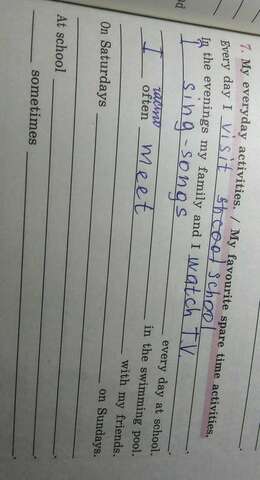 7. My everyday activities. / My favourite spare time activities.
Every day I visit shcool school
In the evenings my family and I watch T.V.
I sing-songs every day at school.
in the swimming pool.
часто
I often meet with my friends.
on Sundays.
On Saturdays
At school
sometimes